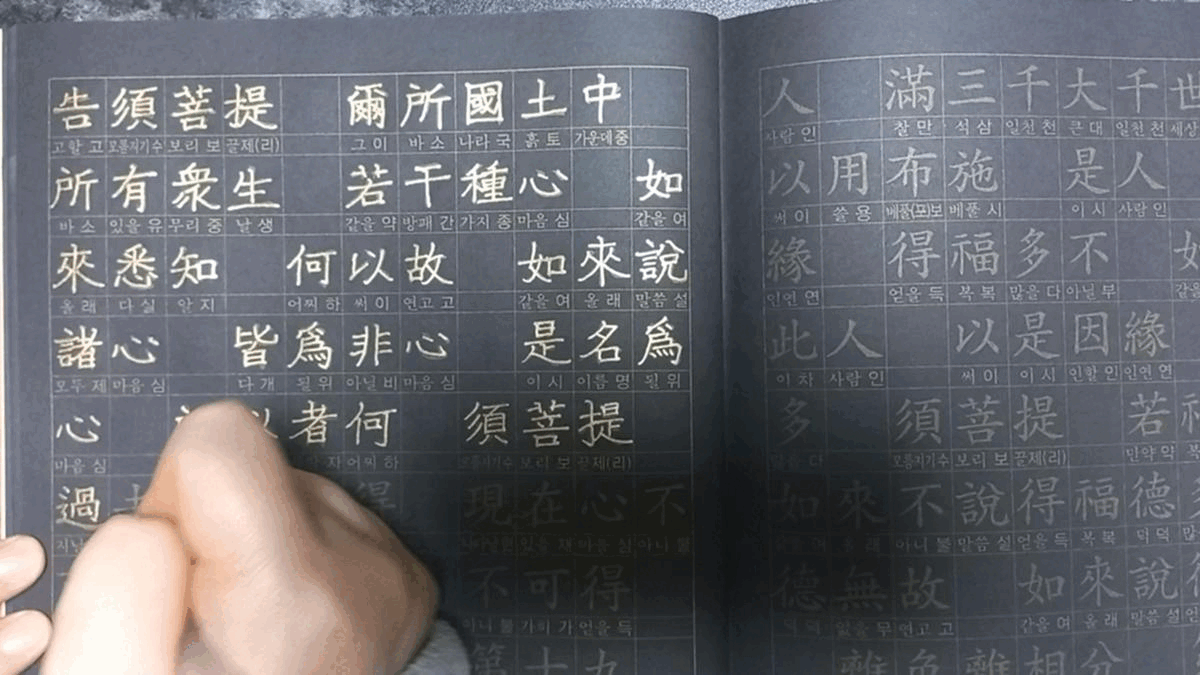 告須菩提 爾所國土中
고할 고 모름지기수 보리 보 끌제(리) 그 이 바 소 나라 국 흙 토 가운데중
所有衆生 若干種心 如
바 소 있을 유 무리 중 날 생 같을 약 방패 간 가지 종 마음 심 같을 여
來悉知 何以故 如來說
올 래 다 실 알 지 어찌 하 써 이 연고 고 같을 여 올 래 말씀 설
諸心 皆爲非心 是名爲
모두 제 마음 심 다 개 될 위 아닐 비 마음 심 이 시 이름 명 될 위
心 以者何 須菩提
마음 심 자 어찌 하 모름지기수 보리 보 끌제(리)
過 得 現在心不
지날 나타날현 있을 재 마음 심 아니 불
不可得
아니 불 가히 가 얻을 득
第十九
人 滿三千大千世
사람 인 찰 만 석 삼 일천 천 큰 대 일천 천
以用布施 是人
써 이 쓸 용 베풀(포)보 베풀 시 이 시 사람 인
緣 得福多不 如
인연 연 얻을 득 복 복 많을 다 아닐 부
此人 以是因緣
이 차 사람 인 써 이 이 시 인할 인 인연 연
多 須菩提 若福
많을 다 모름지기수 보리 보 끌제(리) 만약 약
如來不說得福德
같을 여 올 래 아니 불 말씀 설 얻을 득 복 복 덕 덕
德無故 如來說
덕 덕 없을 무 연고 고 같을 여 올 래 말씀 설
離色離相分